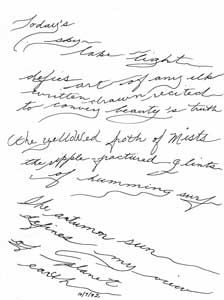 Today's
sky-
lake light
defies art of any ilk
written drawn recited
to convey beauty's truth
the yellowed froth of Mists
the ripple-fractured glints
of humming surf
the autumn sun
defines my view
of planet
earth